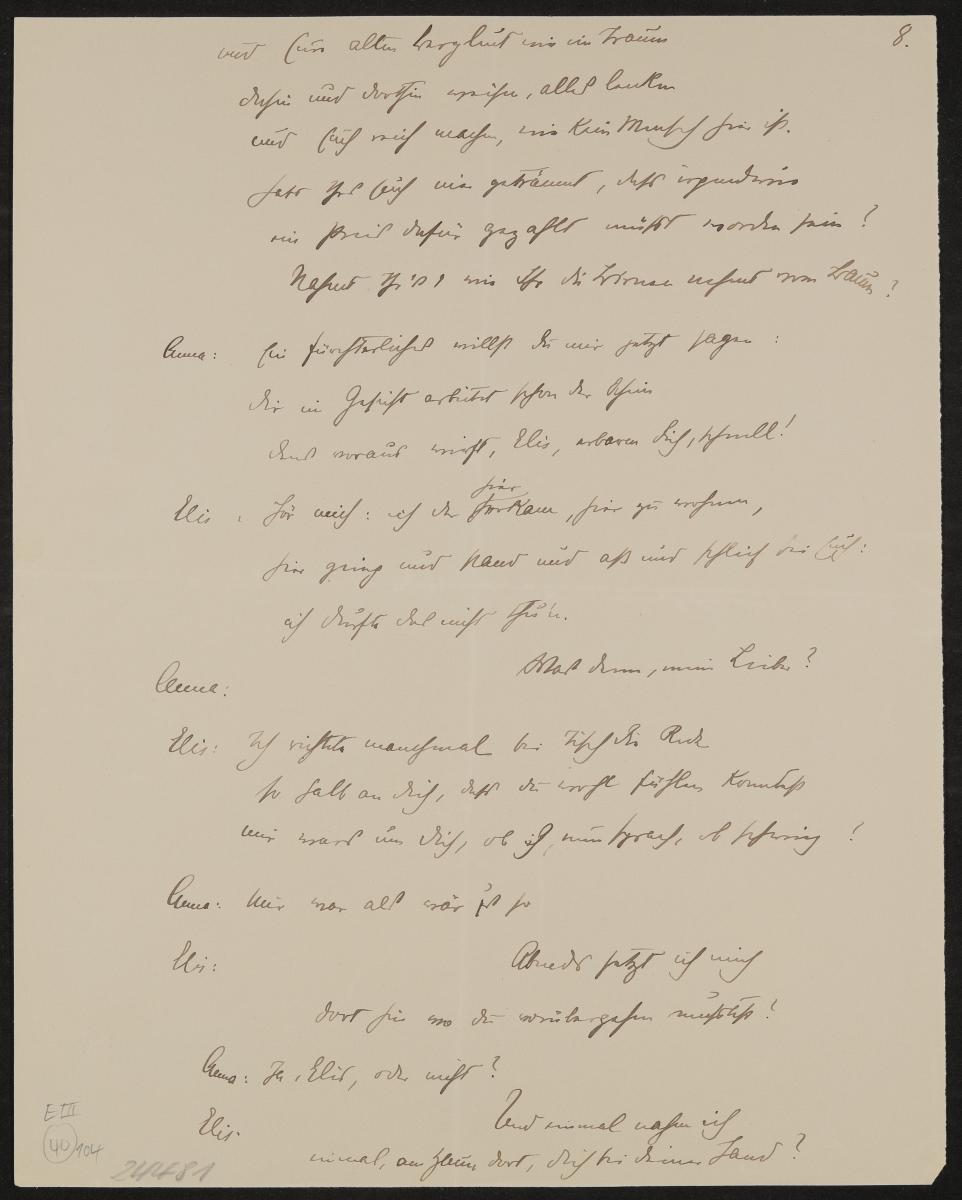 8.
und Eure alten Bergleut wie im Traum
dahin und dorthin weisen, alles lenken
und Euch reich machen, wie kein Mensch hier ist.
Hats Ihr Euch nie geträumt, daß irgendwie
ein Preis dafür gezahlt müßt worden sein?
Nahmt Ihr's wie die Dirnen nehmt vom Traum?
Anna: Ein fürchterliches willst du mir jetzt sagen:
dir im Gesicht arbeitet schon der Schein
den's voraus wirft, Elis, erbarm Dich, schnell!
Elis: Hör mich: ich der hier
kam, hier zu wohnen,
hier ging und stand und aß und schlief bei Euch:
ich durfte das nicht thu'n.
Was denn, mein Lieber?
Anna:
Elis: Ich richtete manchmal bei Tisch die Rede
so halb an dich, daß du wohl fühlen konntest
mir wars um dich, ob ich nun sprach, ob schwieg!
Anna: Mir war als wär es so
Elis: Abends setzt ich mich
dort hin wo du vorübergehen mußtest!
Anna: Ja, Elis, oder nicht?
Elis: Und einmal nahm ich
einmal, am Zaun dort, dich bei deiner Hand?
E III
40 104
24481